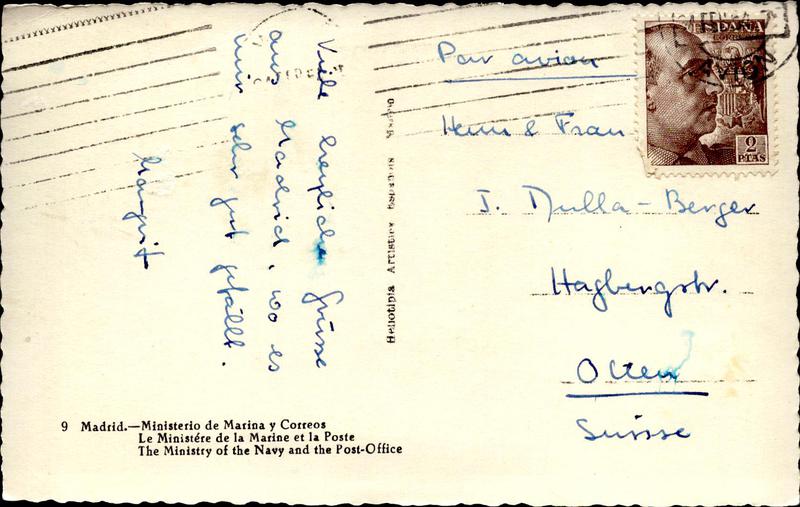 Viele herzliche Grüsse
aus Madrid, wo es
mir sehr gut gefällt.
Margrit
Par avion
ESPAÑA
CORREOS
2
PTAS
Herrn & Frau
J. Mulla-Berger
Hagbergstr.
Olten
Suisse
Heliotipia Artistica Española Madrid
9 Madrid.—Ministerio de Marina y Correos
Le Ministére de la Marine et la Poste
The Ministry of the Navy and the Post-Office